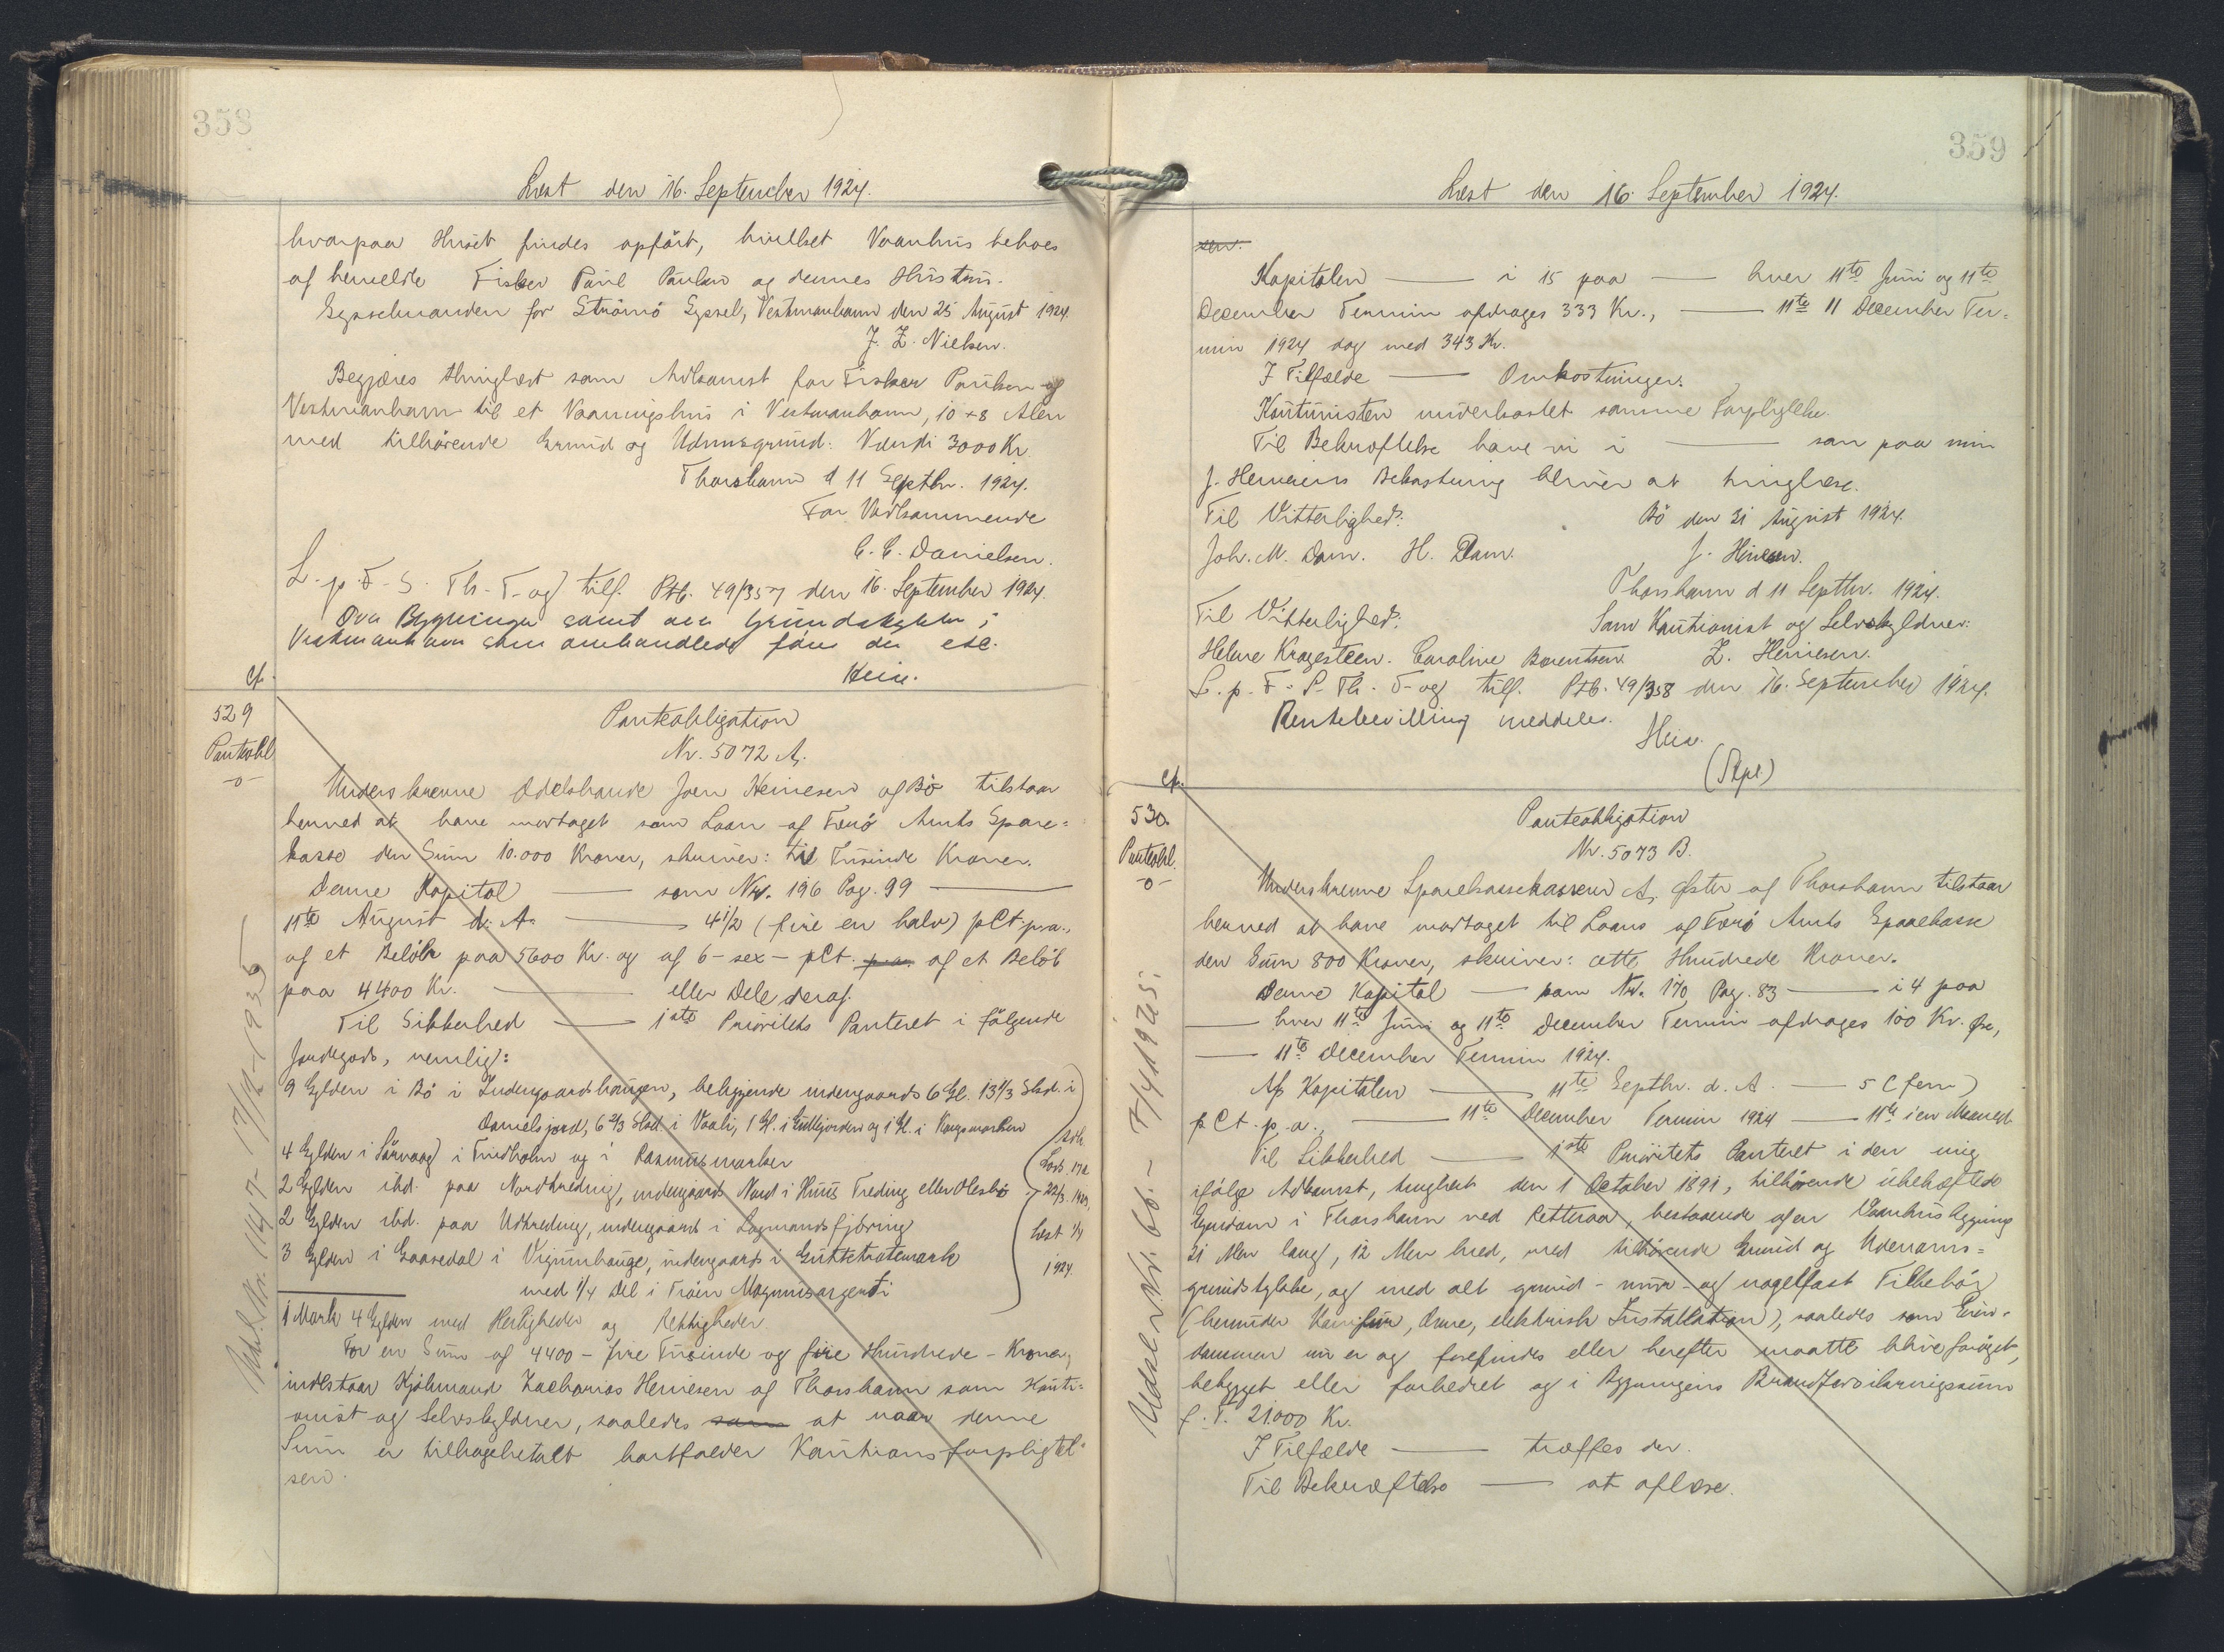 358
Læst den 16. September 1924.
hvorpaa Huset findes opført, hvilket Vaanhus beboes
af bemeldte Fisker Paul Paulsen og dennes Hustru.
Sysselmanden for Strømø Syssel, Vestmanhavn den 25 August 1924.
J. Z. Nielsen.
Begjæres thinglæst som Adkomst for Fisker Poulsen af
Vestmanhavn til et Vaaningshus i Vestmanhavn, 10 x 8 Alen
med tilhørende Grund og Udenomsgrund. Værdi 3000 Kr.
Thorshavn d 11 Septbr. 1924.
For Vedkommende
C. C. Danielsen.
L. p. F. S. Th. T. og tilf. Ptb. 49/357 den 16. September 1924.
Ova Bygningen samt den Grundstykke i
Vestmanhavn som omhandlede føres der etc.
Hein.
cf.
529
Panteobl
-o-
Panteobligation
Nr. 5072 A.
Underskrevne Odelsbonde Joen Heinesen af Bø tilstaar
herved at have modtaget som Laan af Færø Amts Spare=
kasse den Sum 10.000 Kroner, skriver: ti Tusinde Kroner.
Denne Kapital — som Nr. 196 Pag. 99 —
11te August d. A. — 4 1/2 (fire en halv) pCt. p.a.,
af et Beløb paa 5600 Kr. og af 6 - sex - pCt. p.a. af et Beløb
paa 4400 Kr. — eller Dele deraf.
Til Sikkerhed — 1ste Prioritets Panteret i følgende
Jordegods, nemlig:
9 Gylden i Bø i Indengaardshougen, beliggende indengaards 6 Gl. 13 1/3 Skd. i
Danielsjord, 6 2/3 Skd. i Vaali, 1 Gl. i Gulljorden og 1 Gl. i Kongsmarken
4 Gylden i Sørvaag i Tindholm og i Rasmusmarken
2 Gylden ibd. paa Nordhrednig, indengaards Nord i Huus Treding eller Olesbø
2 Gylden ibd. paa Udhredning, indengaards i Lagmandsfjöring
3 Gylden i Gaasedal i Vigumhauge, indengaards i Guttetrotemark
med 1/4 Del i Tröin Magnusargerdi
Skh.
Lods. 17a
22/3. 1909,
Læst 1/4
1924.
1 Mark 4 Gylden med Herligheder og Rettigheder.
For en Sum af 4400 - fire Tusinde og fire Hundrede - Kroner,
indestaar Kjøbmand Zacharias Heinesen af Thorshavn som Kauti=
onist og Selvskyldner, saaledes som at naar denne
Sum er tilbagebetalt bortfalder Kautionsforpligtel=
sen.
Udsl. Nr. 1147 - 17/12 - 1935
359
Læst den 16. September 1924.
sen.
Kapitalen — i 15 paa — hver 11te Juni og 11te
December Termin afdrages 333 Kr., — 11te 11 December Ter=
min 1924 dog med 343 Kr.
I Tilfælde — Omkostninger.
Kautionisten underkastet samme Forpligtelse.
Til Bekræftelse have vi i — som paa min
J. Heinesens Bekostning bliver at tinglæse.
Til Vitterlighed: Bø den 31 August 1924.
Joh. M. Dam. H. Dam. J. Heinesen.
Thorshavn d 11 Septbr. 1924.
Til Vitterlighed: Som Kautionist og Selvskyldner:
Helene Kragesteen. Caroline Berentsen. Z. Heinesen.
L. p. F. S. Th. T. og tilf. Ptb. 49/358 den 16. September 1924.
Rentebevilling meddeles.
Hein.
(Stpl)
cf.
530.
Panteobl.
-o-
Panteobligation
Nr. 5073 B.
Underskrevne Sparekassekasserer A. Øster af Thorshavn tilstaar
herved at have modtaget til Laans af Færø Amts Sparekasse
den Sum 800 Kroner, skriver: otte Hundrede Kroner.
Denne Kapital — som Nr. 170, Pag. 83 — i 4 paa
— hver 11te Juni og 11te December Termin afdrages 100 Kr. Øre,
— 11te December Termin 1924.
Af Kapitalen — 11te Septbr. d. A. — 5 (fem)
pCt. p.a., — 11te December Termin 1924 — 11te i en Maaned.
Til Sikkerhed — 1ste Prioritets Panteret i den mig
ifølge Adkomst, tinglæst den 1 October 1891, tilhørende ubehæftede
Ejendom i Thorshavn ved Rettraa, bestaaende af en Vaanhusbygning
21 Alen lang, 12 Alen bred, med tilhørende Grund og Udenoms=
grundstykke, og med alt grund- mur- og nagelfast Tilbehør
(herunder Komfur, Ovne, elektrisk Installation), saaledes som Eien-
dommen nu er og forefindes eller herefter maatte blive forøget,
bebygget eller forbedret og i Bygningens Brandforsikringssum
f. T. 21.000 Kr.
I Tilfælde — træffes der.
Til Bekræftelse — at aflæse.
Udsl. Nr. 66. - 7/4 1925.